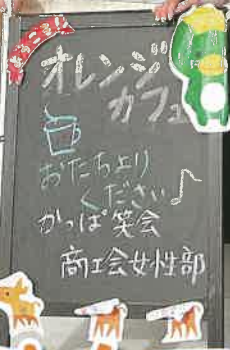 オレンジ
カフェ
おたちより
ください♪
かっぱ笑会
商工会女性部